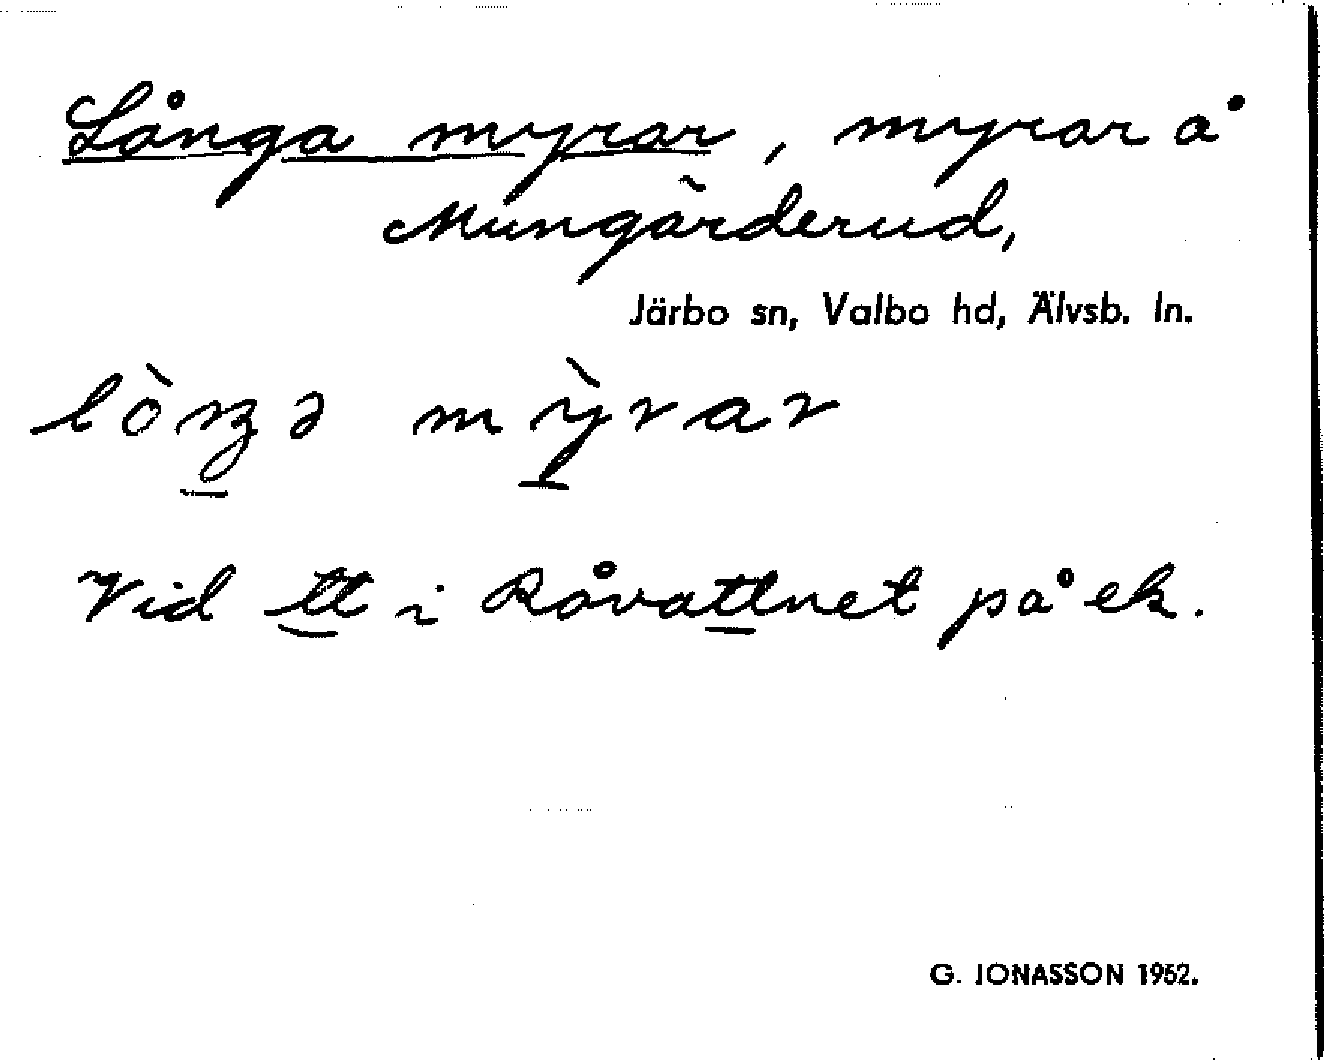 Långa myrar, myrar å
Mungärderud,
Järbo sn, Valbo hd, Älvsb. ln.
lòŋə mỳrar
Vid tt i Råvattnet på ek.
G. JONASSON 1952.